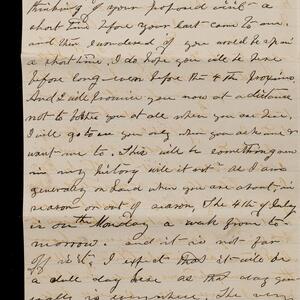 thinking of your proposed visit a
short time before your last came to me.
and then I wondered if you would be here in
a short time. I do hope you will be here
before long - even before the 4th
And I will promise you now at a distance
not to bother you at all when you are here,
I will go to see you only when you ask me &
want me to. This will be something new
in my history will it not as I am
generally on hand when you are about, in
season or out of season. The 4th of July
is on the Monday a week from to-
morrow. and it is not far
off is it. I expect it will be
a dull day here as that day
really is everywhere. The very